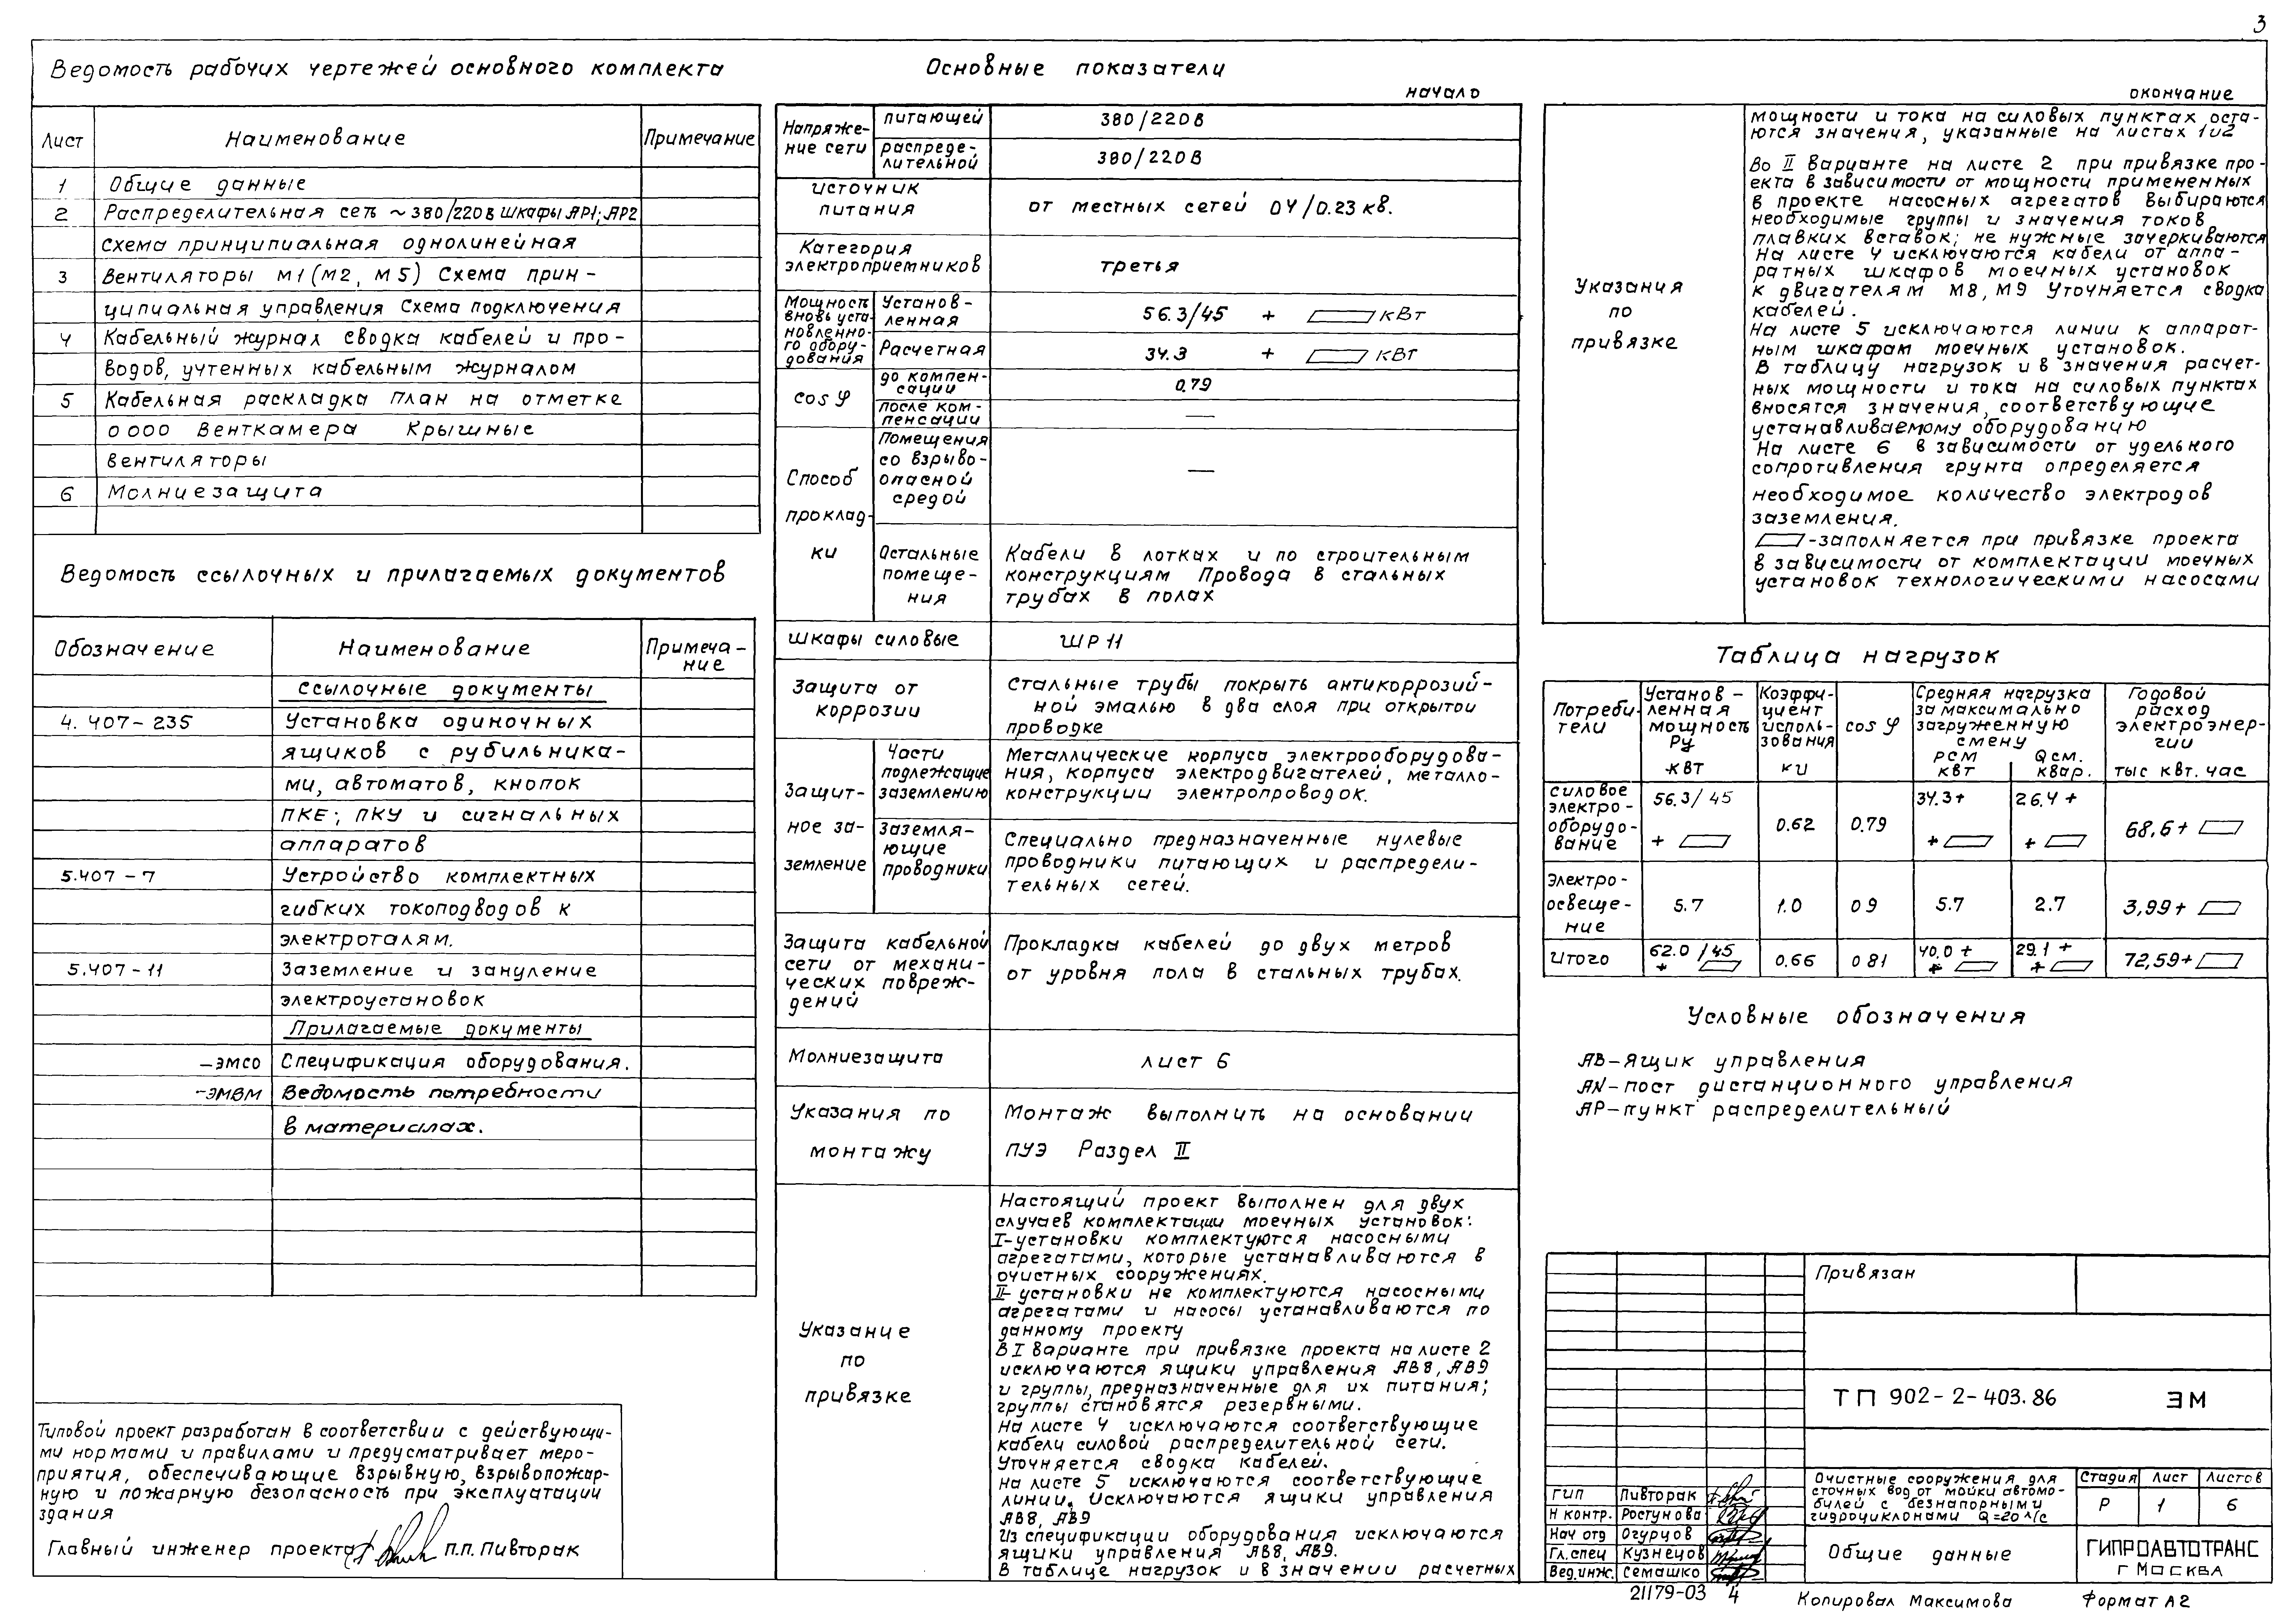 3
Ведомость рабочих чертежей основного комплекта
Лист Наименование Примечание
1 Общие данные
2 Распределительная сеть ~380/220в шкафы АР1; АР2
схема принципиальная однолинейная
3 Вентиляторы М1 (М2, М5) Схема прин-
ципиальная управления Схема подключения
4 Кабельный журнал Сводка кабелей и про-
водов, учтенных кабельным журналом
5 Кабельная раскладка План на отметке
0000 Венткамера Крышные
вентиляторы
6 Молниезащита
Ведомость ссылочных и прилагаемых документов
Обозначение Наименование Примеча-
ние
Ссылочные документы
4.407-235 Установка одиночных
ящиков с рубильника-
ми, автоматов, кнопок
ПКЕ; ПКУ и сигнальных
аппаратов
5.407-7 Устройство комплектных
гибких токоподводов к
электроталям.
5.407-11 Заземление и зануление
электроустановок
Прилагаемые документы
-ЭМСО Спецификация оборудования.
-ЭМВМ Ведомость потребности
в материалах.
Типовой проект разработан в соответствии с действующи-
ми нормами и правилами и предусматривает меро-
приятия, обеспечивающие взрывную, взрывопожар-
ную и пожарную безопасность при эксплуатации
здания
Главный инженер проекта П.П. Пивторак
Основные показатели
начало
Напряже-
ние сети
питающей 380/220в
распреде-
лительной 380/220в
источник
питания
от местных сетей 04/0.23 кв.
Категория
электроприемников
третья
Мощность
вновь уста
новленно-
го обору-
дования
Установ-
ленная
56.3/45 + кВт
Расчетная 34.3 + кВт
cos φ
до компен-
сации
0.79
после ком-
пенсации
—
Способ
проклад-
ки
Помещения
со взрыво-
опасной
средой
—
Остальные
помеще-
ния
Кабели в лотках и по строительным
конструкциям Провода в стальных
трубах в полах
Шкафы силовые ШР 11
Защита от
коррозии
Стальные трубы покрыть антикоррозий-
ной эмалью в два слоя при открытой
проводке
Защит-
ное за-
земление
Части
подлежащие
заземлению
Металлические корпуса электрооборудова-
ния, корпуса электродвигателей, металло-
конструкции электропроводок.
Заземля-
ющие
проводники
Специально предназначенные нулевые
проводники питающих и распредели-
тельных сетей.
Защита кабельной
сети от механи-
ческих повреж-
дений
Прокладка кабелей до двух метров
от уровня пола в стальных трубах.
Молниезащита лист 6
Указания по
монтажу
Монтаж выполнить на основании
ПУЭ Раздел II
Указание
по
привязке
Настоящий проект выполнен для двух
случаев комплектации моечных установок:
I-установки комплектуются насосными
агрегатами, которые устанавливаются в
очистных сооружениях.
II-установки не комплектуются насосными
агрегатами и насосы устанавливаются по
данному проекту
В I варианте при привязке проекта на листе 2
исключаются ящики управления АВ8, АВ9
и группы, предназначенные для их питания;
группы становятся резервными.
На листе 4 исключаются соответствующие
кабели силовой распределительной сети.
Уточняется сводка кабелей.
На листе 5 исключаются соответствующие
линии. Исключаются ящики управления
АВ8, АВ9
Из спецификации оборудования исключаются
ящики управления АВ8, АВ9.
В таблице нагрузок и в значении расчетных
окончание
Указания
по
привязке
мощности и тока на силовых пунктах оста-
ются значения, указанные на листах 1 и 2
Во II варианте на листе 2 при привязке про-
екта в зависимости от мощности примененных
в проекте насосных агрегатов выбираются
необходимые группы и значения токов
плавких вставок; не нужные зачеркиваются
На листе 4 исключаются кабели от аппа-
ратных шкафов моечных установок
к двигателям М8, М9 Уточняется сводка
кабелей.
На листе 5 исключаются линии к аппарат-
ным шкафам моечных установок.
В таблицу нагрузок и в значения расчет-
ных мощности и тока на силовых пунктах
вносятся значения, соответствующие
устанавливаемому оборудованию
На листе 6 в зависимости от удельного
сопротивления грунта определяется
необходимое количество электродов
заземления.
-заполняется при привязке проекта
в зависимости от комплектации моечных
установок технологическими насосами
Таблица нагрузок
Потреби-
тели
Установ-
ленная
мощность
Ру
квт
Коэффи-
циент
исполь-
зования
ки
cos φ
Средняя нагрузка
за максимально
загруженную
смену
Рсм
квт
Qсм.
квар.
Годовой
расход
электроэнер-
гии
тыс квт. час
силовое
электро-
оборудо-
вание
56.3/45
+
0.62 0.79
34.3+
+
26.4+
+
68,6+
Электро-
освеще-
ние
5.7 1.0 09 5.7 2.7 3,99+
Итого
62.0/45
+
0.66 081
40.0+
+
29.1+
+
72,59+
Условные обозначения
АВ-ящик управления
AN-пост дистанционного управления
АР-пункт распределительный
Привязан
ТП 902-2-403.86 ЭМ
ГИП Пивторак
Н контр. Ростунова
Нач отд Огурцов
Гл.спец Кузнецов
Вед.инж. Семашко
Очистные сооружения для
сточных вод от мойки автомо-
билей с безнапорными
гидроциклонами Q=20л/с
Стадия Лист Листов
Р 1 6
Общие данные
ГИПРОАВТОТРАНС
г Москва
21179-03 4
Копировал Максимова Формат А2